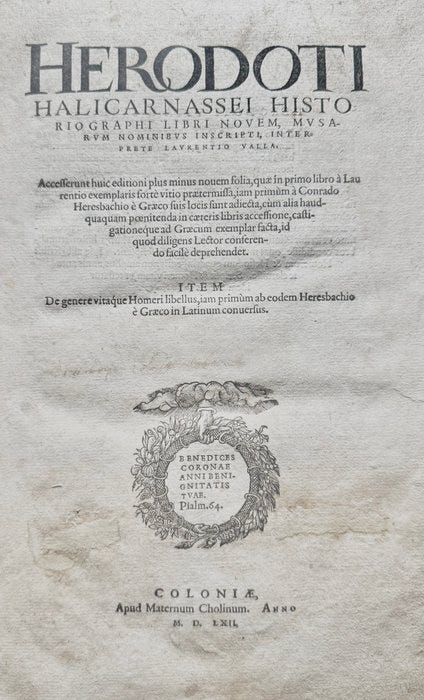 HERODOTI
HALICARNASSEI HISTO
RIOGRAPHI LIBRI NOVEM, MVSA-
RVM NOMINIBVS INSCRIPTI, INTER-
PRETE LAVRENTIO VALLA.
Accesserunt huic editioni plus minus nouem folia, quæ in primo libro à Lau
rentio exemplaris fortè vitio prætermissa, iam primùm à Conrado
Heresbachio è Græco suis locis sunt adiecta, cùm alia haud-
quaquam pœnitenda in cæteris libris accessione, casti-
gationeque ad Græcum exemplar facta, id
quod diligens Lector conferen-
do facilè deprehendet.
ITEM
De genere vitaque Homeri libellus, iam primùm ab eodem Heresbachio
è Græco in Latinum conuersus.
BENEDICES
CORONAE
ANNI BENI-
GNITATIS
TVAE.
Psalm. 64.
COLONIÆ,
Apud Maternum Cholinum. ANNO
M. D. LXII.